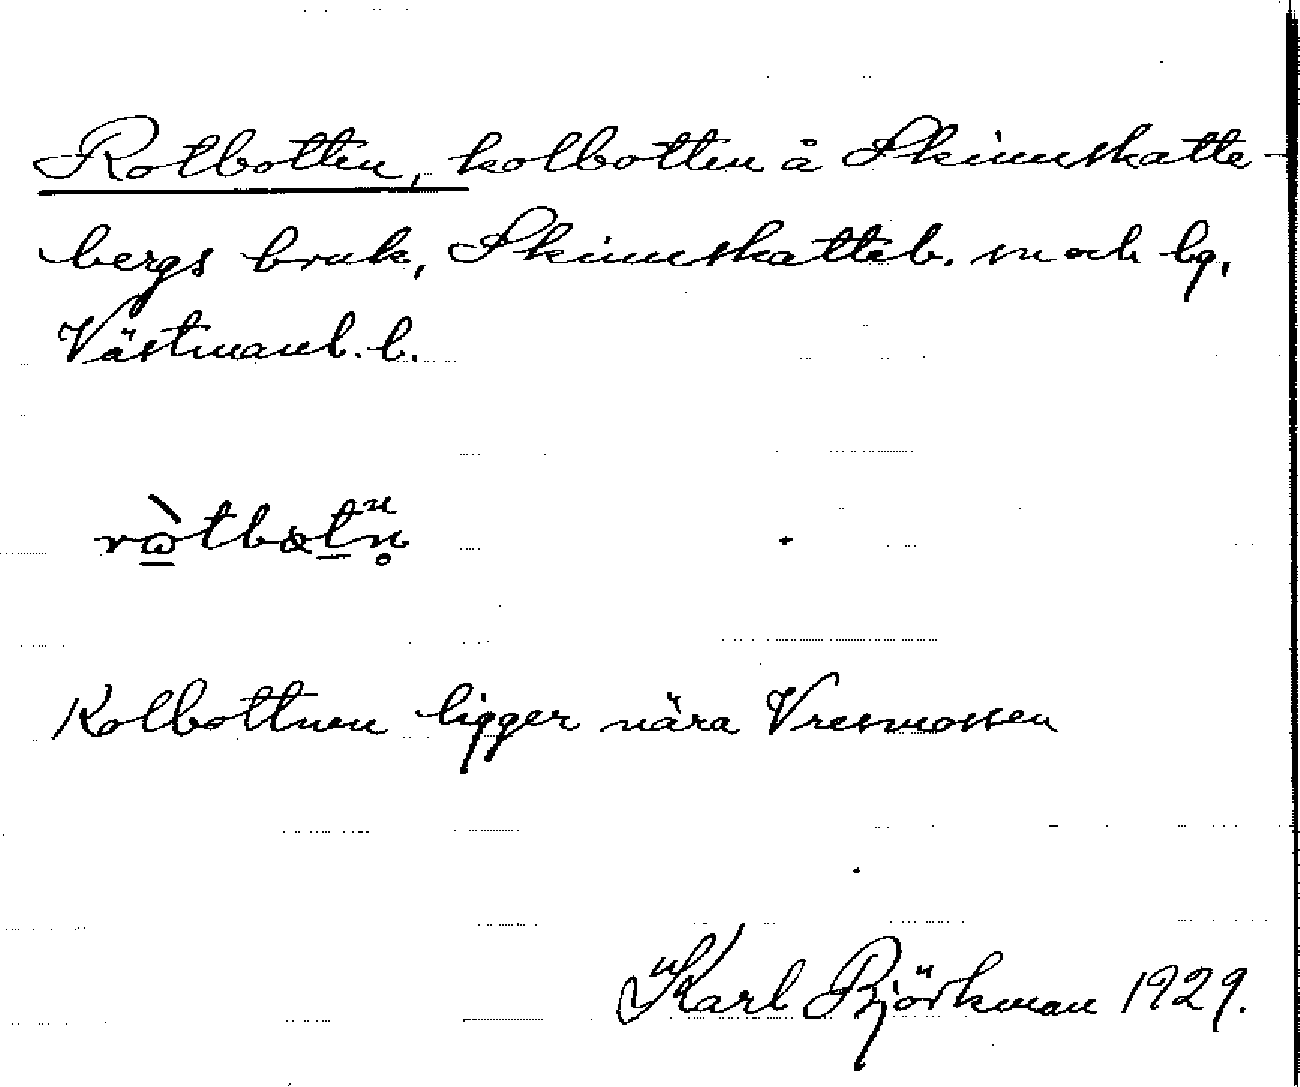 Rotbotten, kolbotten å Skinnskatte-
bergs bruk, Skinnskatteb. sn och bg,
Västmanl. l.
rò̠tbɷt̠n̥
Kolbottnen ligger nära Vresmossen
Karl Björkman 1929.